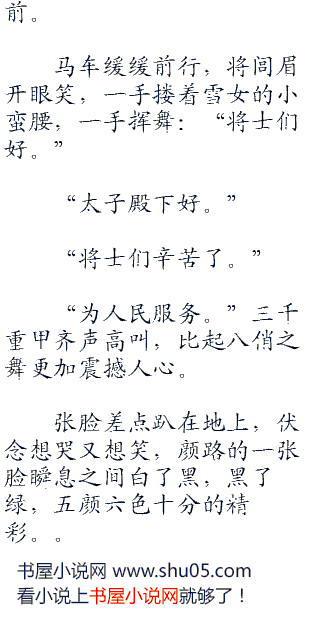 前。
马车缓缓前行，将闾眉
开眼笑，一手搂着雪女的小
蛮腰，一手挥舞：“将士们
好。”
“太子殿下好。”
“将士们辛苦了。”
“为人民服务。”三千
重甲齐声高叫，比起八俏之
舞更加震撼人心。
张脸差点趴在地上，伏
念想哭又想笑，颜路的一张
脸瞬息之间白了黑，黑了
绿，五颜六色十分的精
彩。。
书屋小说网 www.shu05.com
看小说上书屋小说网就够了！